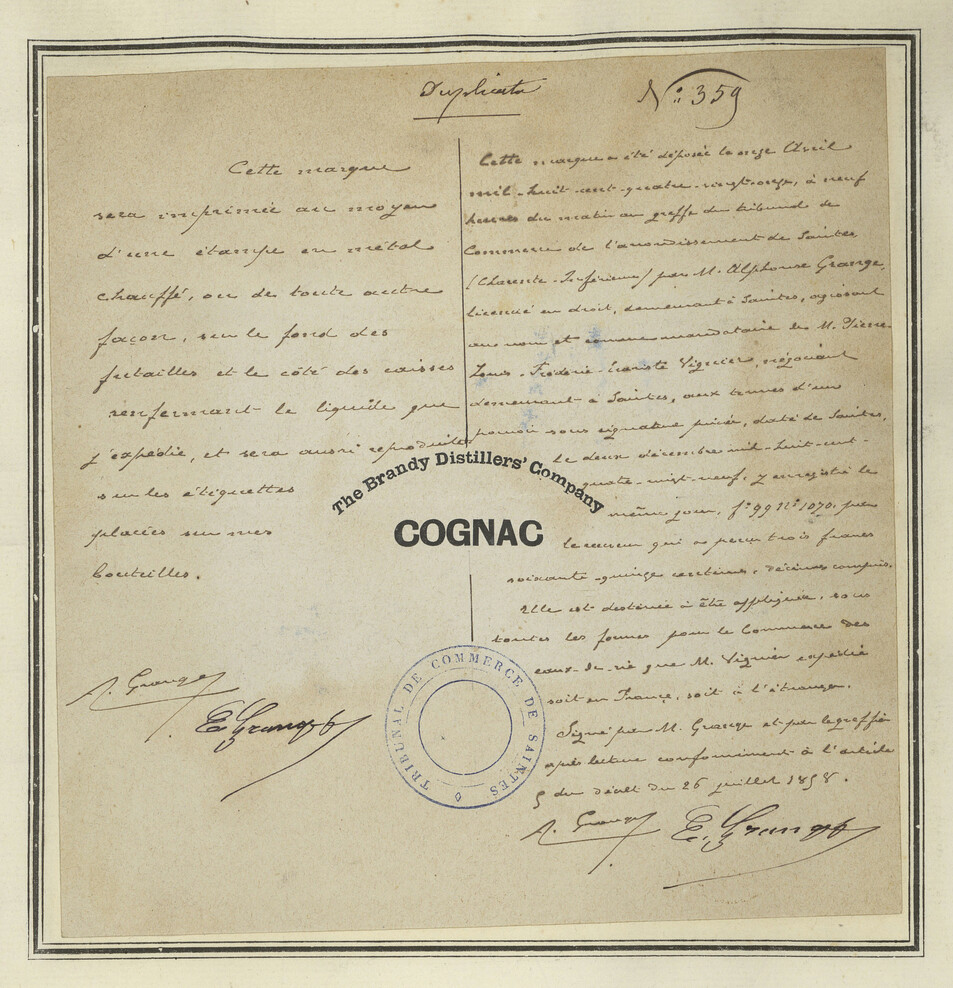 Duplicata
N° 359
Cette marque
sera imprimée au moyen
d'une étampe en métal
chauffé, ou de toute autre
façon, sur le fond des
futailles et le côté des caisses
renfermant le liquide que
j'expédie, et sera aussi reproduite
sur les étiquettes
placées sur mes
bouteilles.
A. Grange
Cette marque a été déposée le onze Avril
mil-huit-cent-quatre-vingt-onze, à neuf
heures du matin au greffe du tribunal de
Commerce de l'arrondissement de Saintes
(Charente-Inférieure) par M. Alphonse Grange,
licencié en droit, demeurant à Saintes, agissant
au nom et comme mandataire de M. Pierre-
Louis-Frédéric-Evariste Vignier, négociant
demeurant à Saintes, aux termes d'un
pouvoir sous signature privée, daté de Saintes,
le deux décembre mil-huit-cent-
quatre-vingt-neuf, y enregistré le
même jour, f° 99 N° 1070, par
le receveur qui a perçu trois francs
soixante-quinze centimes, décimes compris.
Elle est destinée à être appliquée, sous
toutes les formes pour le Commerce des
eaux-de-vie que M. Vignier expédie
soit en France, soit à l'étranger.
Signé par M. Grange et par le greffier
après lecture conformément à l'article
5 du décret du 26 juillet 1858.
A. Grange
The Brandy Distillers' Company
COGNAC
TRIBUNAL DE COMMERCE DE SAINTES